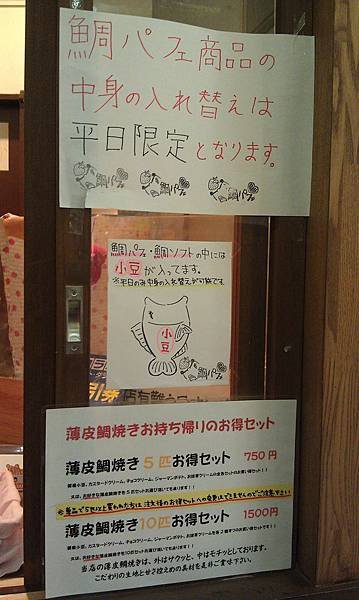 鯛パフェ商品の
中身の入れ替えは
平日限定となります。
鯛パフェ
鯛パフェ
鯛パフェ
鯛パフェ・鯛ソフトの中には
小豆が入ってます。
※平日のみ中身の入れ替えが可能です
小豆
鯛パフェ
薄皮鯛焼きお持ち帰りのお得セット
薄皮鯛焼き5匹お得セット 750円
薄皮鯛焼き10匹お得セット 1500円
当店の薄皮鯛焼きは、外はサクッと、中はモチッとしております。
こだわりの生地と甘さ控えめの具材を是非ご賞味下さい。